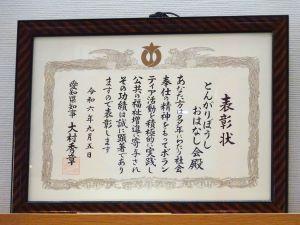 表彰状
とんがりぼうし
おはなし会殿
あなた方は多年にわたり社会
奉仕の精神をもってボラン
ティア活動を積極的に実践し
公共の福祉増進に寄与され
その功績は誠に顕著であり
ますので表彰します
令和六年九月五日
愛知県知事 大村秀章